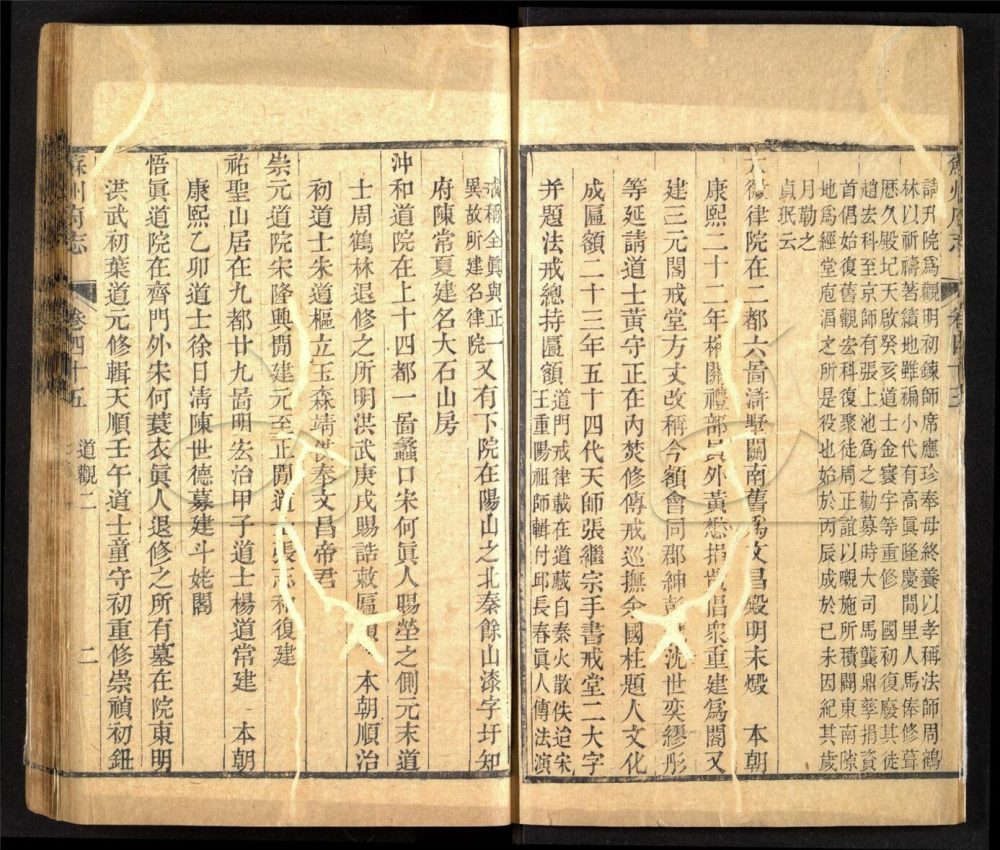 蘇州府志
請升院為觀明初鍊師席應珍奉母終養以孝稱法師周鶴
林以祈禱著績地雖褊小代有高眞隆慶間里人馬俸修葺
歷久殿圮天啟癸亥道士金寰宇等重修　國初復廢其徒
趙宏科至京師有張上池爲之勸募時大司馬龔鼎孳捐資
首倡始復舊觀宏科復聚徒周正誼以嚫施所積闢東南隙
地爲經堂庖湢之所是役也始於丙辰成於己未因紀其歲
月勒之
貞珉云
微律院在二都六啚滸墅關南舊爲文昌殿明末燬　本朝
康熙二十二年榷關禮部員外黃懋捐貲倡衆重建爲閣又
建三元閣戒堂方丈改稱今額會同郡紳彭　沈世奕繆彤
等延請道士黃守正在內焚修傳戒巡撫余國柱題人文化
成匾額二十三年五十四代天師張繼宗手書戒堂二大字
并題法戒總持匾額
道門戒律載在道藏白秦火散佚迨宋
王重陽祖師輯付邱長春眞人傳法演
戒稱全眞與正一
異故所建名律院
又有下院在陽山之北秦餘山漆字圩知
府陳常夏建名大石山房
沖和道院在上十四都一啚蠡口宋何眞人賜塋之側元末道
士周鶴林退修之所明洪武庚戌賜誥敕匾額　本朝順治
初道士朱道樞立玉森靖供奉文昌帝君
崇元道院宋隆興間建元至正間道士張志和復建
祐聖山居在九都廿九啚明宏治甲子道士楊道常建　本朝
康熙乙卯道士徐日清陳世德募建斗姥閣
悟眞道院在齊門外宋何蓑衣眞人退修之所有墓在院東明
洪武初葉道元修輯天順壬午道士童守初重修崇禎初鈕
蘇州府志
卷四十五
道觀二
二